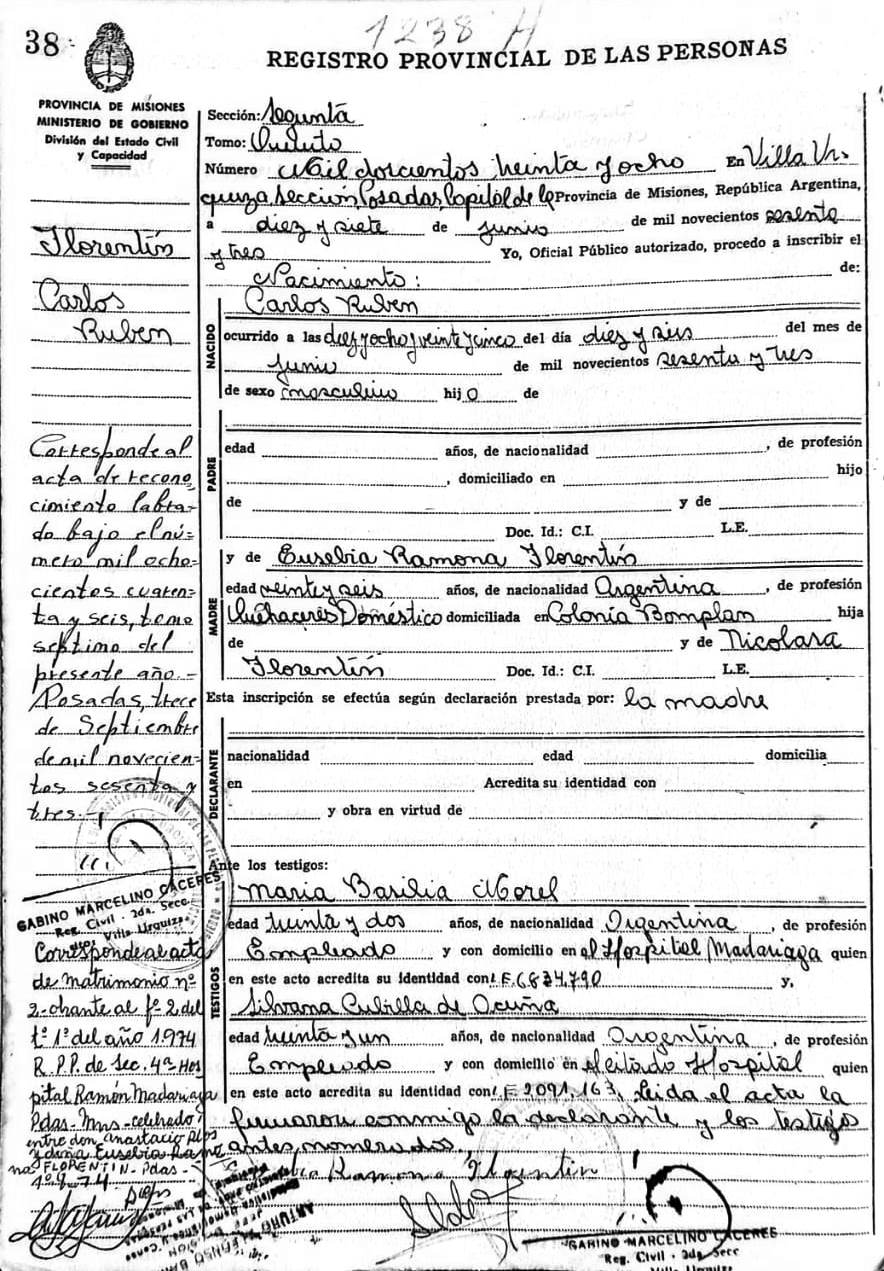 38
1238 H
REGISTRO PROVINCIAL DE LAS PERSONAS
PROVINCIA DE MISIONES
MINISTERIO DE GOBIERNO
División del Estado Civil
y Capacidad
Sección: Segunda
Tomo: Quinto
Número Mil doscientos treinta y ocho En Villa Ur-
quiza, Sección, Posadas, Capital de la Provincia de Misiones, República Argentina,
a diez y siete de junio de mil novecientos sesenta
y tres Yo, Oficial Público autorizado, procedo a inscribir el
Nacimiento: de:
Florentín
Carlos
Ruben
NACIDO
Carlos Ruben
ocurrido a las diez y ocho y veinte y cinco del día diez y seis del mes de
junio de mil novecientos sesenta y tres
de sexo masculino hijo de
PADRE
edad años, de nacionalidad , de profesión
, domiciliado en hijo
de y de
Doc. Id.: C.I. L.E.
MADRE
y de Eusebia Ramona Florentín
edad veinte y seis años, de nacionalidad Argentina , de profesión
Quehaceres Doméstico domiciliada en Colonia Bomplan hija
de y de Nicolasa
Florentín Doc. Id.: C.I. L.E.
Esta inscripción se efectúa según declaración prestada por: la madre
DECLARANTE
nacionalidad edad domicilia
en Acredita su identidad con
y obra en virtud de
Ante los testigos:
TESTIGOS
Maria Basilia Morel
edad treinta y dos años, de nacionalidad Argentina , de profesión
Empleado y con domicilio en el Hospital Madariaga quien
en este acto acredita su identidad con L.E. 6834.790 y,
Silvana Cubilla de Ocuña
edad treinta y un años, de nacionalidad Argentina , de profesión
Empleado y con domicilio en el citado Hospital quien
en este acto acredita su identidad con L.E. 2.091.163, Leida el acta la
firmaron conmigo la declarante y los testigo
antes nomerados.
Ramona Florentin
GABINO MARCELINO CACERES
Reg. Civil - 2da. Secc
Villa Urquiza
Corresponde al
acta de recono
cimiento labra-
do bajo el nú-
mero mil ocho-
cientos cuaren-
ta y seis, tomo
septimo del
presente año.-
Posadas, trece
de Septiembre
de mil novecien-
tos sesenta y
tres.-
GABINO MARCELINO CACERES
Reg. Civil - 2da. Secc
Villa Urquiza
Corresponde al acta
de Matrimonio nº
2- obrante al fº 2 del
tº 1º del año 1.974
R.P.P. de Sec. 4ª Hos
pital Ramón Madariaga
Pdas- Mns- celebrado
entre don Anastacio
y doña Eusebia Ramo
na FLORENTIN - Pdas -